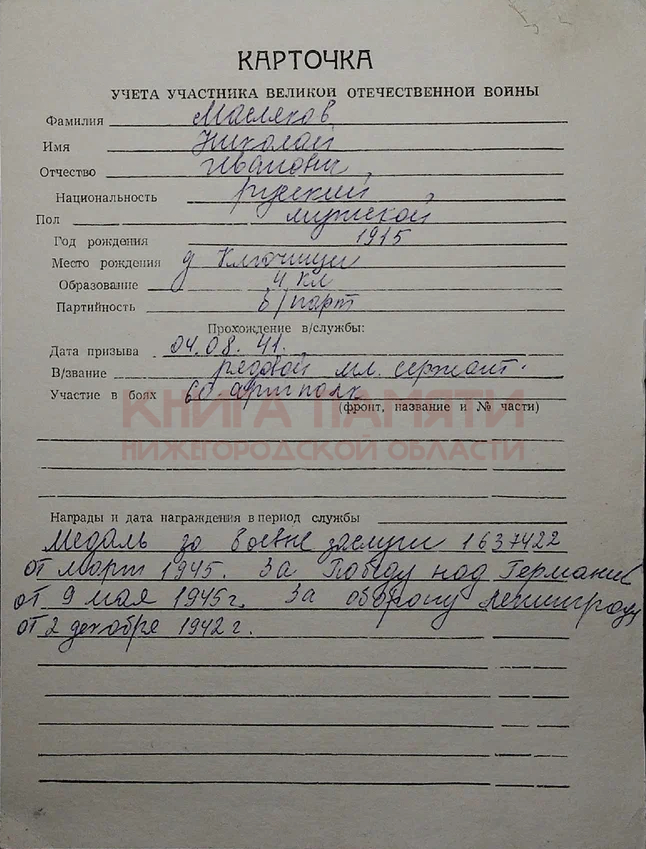 КАРТОЧКА
УЧЕТА УЧАСТНИКА ВЕЛИКОЙ ОТЕЧЕСТВЕННОЙ ВОЙНЫ
Фамилия Масляков
Имя Николай
Отчество Иванович
Национальность русский
Пол мужской
Год рождения 1915
Место рождения д Ключищи
Образование 4 кл
Партийность б/парт
Прохождение в/службы:
Дата призыва 04.08.41.
В/звание рядовой мл. сержант.
Участие в боях 60 артполк
(фронт, название и № части)
КНИГА ПАМЯТИ
НИЖЕГОРОДСКОЙ ОБЛАСТИ
Награды и дата награждения в период службы
Медаль за боевые заслуги 1637422
от март 1945. За Победу над Германией
от 9 мая 1945г. За оборону Ленинграда
от 2 декабря 1942 г.